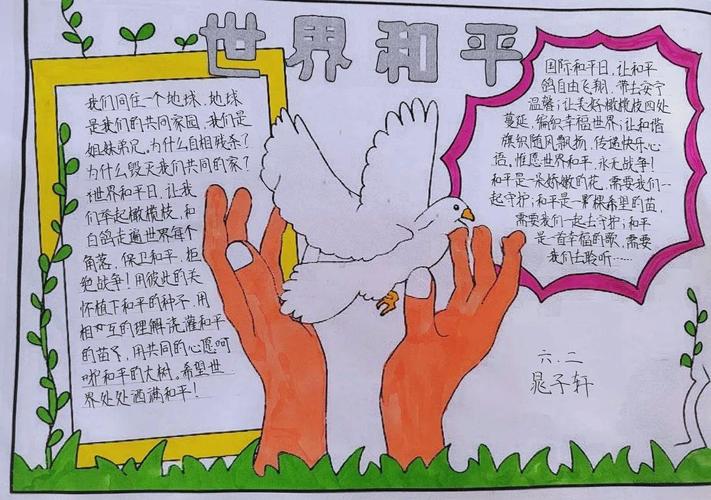 世界和平
我们同住一个地球,地球
是我们的共同家园,我们是
姐妹弟兄,为什么自相残杀?
为什么毁灭我们共同的家?
世界和平日,让我
们举起橄榄枝,和
白鸽走遍世界每个
角落,保卫和平,拒
绝战争!用彼此的关
怀植下和平的种子,用
相互的理解浇灌和平
的苗,用共同的心愿呵
护和平的大树。希望世
界处处洒满和平!
国际和平日,让和平
鸽自由飞翔,带去安宁
温馨;让美好橄榄枝四处
蔓延,编织幸福世界;让和谐
旗帜随风飘扬,传递快乐心
语,惟愿世界和平,永无战争!
和平是一朵娇嫩的花,需要我们一
起守护;和平是一颗希望的苗,
需要我们一起去守护;和平
是一首幸福的歌,需要
我们去聆听……
六.二
晁子轩